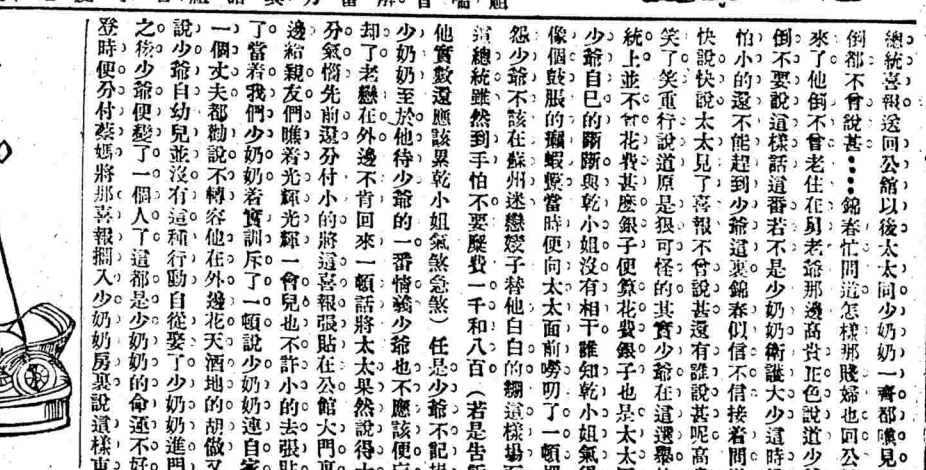 總統喜報送回公館以後太太同少奶奶一齊都喚見
倒都不曾說甚⋯⋯錦春忙問道怎樣那賤婦也回公
來了他倒不曾老住在舅老爺那邊高貴正色說道少
倒不要說這樣話這番若不是少奶奶衛護大少這時
怕小的還不能趕到少爺這裏錦春似信不信接着問
快說快說太太見了喜報不曾說甚還有誰說甚呢高
笑了笑重行說道原是狠可怪的其實少爺在這選舉
統上並不曾花費甚麽銀子便算花費銀子也是太太
少爺自己的斷斷與乾小姐沒有相干誰知乾小姐氣得
像個鼓脹的癩蝦蟆當時便向太太面前嘮叨了一頓
怨少爺不該在蘇州迷戀嫂子替他白白的綳這樣場
這總統雖然到手怕不要廢費一千和八百（若是告訴
他實數還應該累乾小姐氣煞急煞）任是少爺不記
少奶奶至於他待少爺的一番情義少爺也不應該便
却了老戀在外邊不肯回來一頓話將太太果然說得
分氣惱先前還分付小的將這喜報張貼在公館大門
邊給親友們瞧着光輝光輝一會兒也不許小的去張貼
了當着我們少奶奶着實訓斥了一頓說少奶奶連自家
一個丈夫都勸說不轉容他在外邊花天酒地的胡做又
說少爺自幼兒並沒有這種行動自從娶了少奶奶進門
之後少爺便變了一個人了這都是少奶奶的命運不好
登時便分付蔡媽將那喜報擱入少奶奶房裏說這樣東